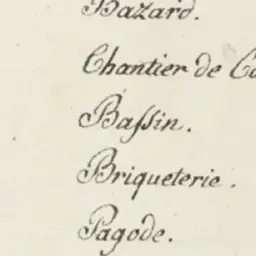 Bazard.
Chantier de Co
Baſsin.
Briqueterie.
Pagode.